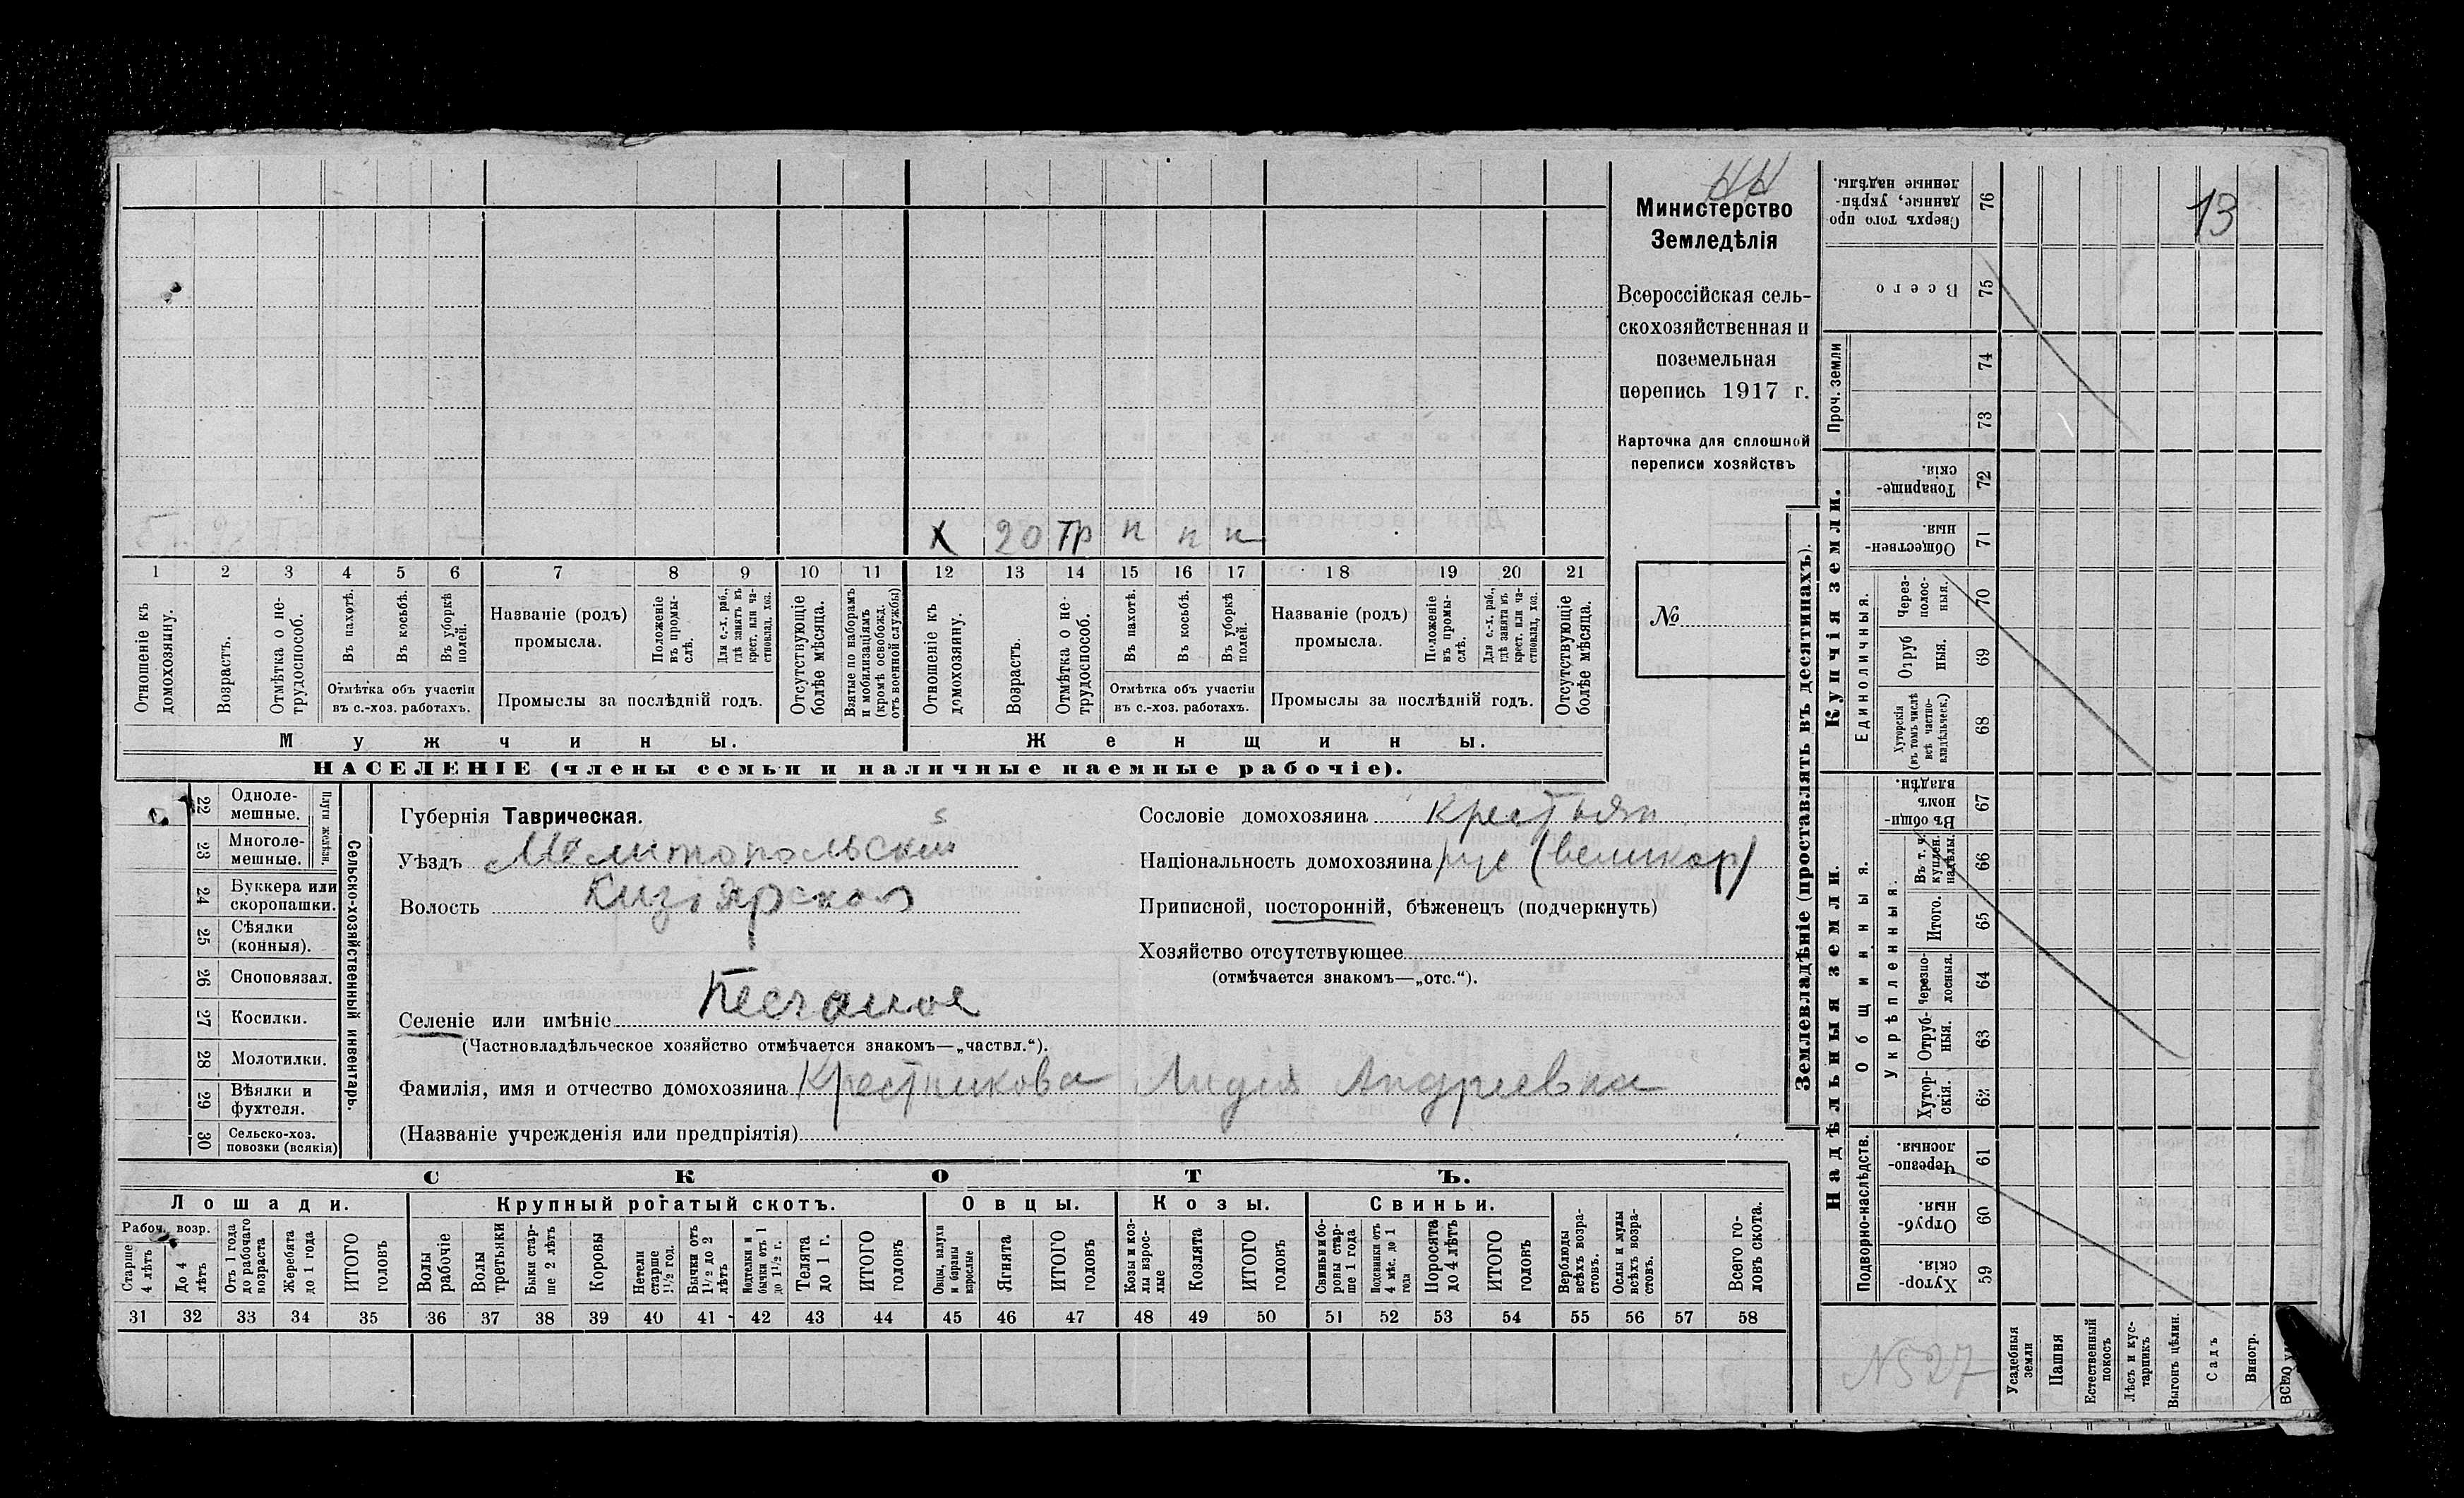 НН
13
Министерство
Земледѣлія
Всероссійская сель-
скохозяйственная и
поземельная
перепись 1917 г.
Карточка для сплошной
переписи хозяйствъ
№
х 20 Тр п п п
1 2 3 4 5 6 7 8 9 10 11 12 13 14 15 16 17 18 19 20 21
Отношеніе къ домохозяину.
Возрастъ.
Отмѣтка о не-трудоспособ.
Въ пахотѣ.
Въ косьбѣ.
Въ уборкѣ полей.
Отмѣтка объ участіи
въ с.-хоз. работахъ.
Названіе (родъ)
промысла.
Положеніе въ промы-слѣ.
Для с.-х. раб., гдѣ занятъ въ крест. или ча-стновлад. хоз.
Промыслы за послѣдній годъ.
Отсутствующіе болѣе мѣсяца.
Взятые по наборамъ и мобилизаціямъ (кромѣ освобожд. отъ военной службы)
Отношеніе къ домохозяину.
Возрастъ.
Отмѣтка о не-трудоспособ.
Въ пахотѣ.
Въ косьбѣ.
Въ уборкѣ полей.
Отмѣтка объ участіи
въ с.-хоз. работахъ.
Названіе (родъ)
промысла.
Положеніе въ промы-слѣ.
Для с.-х. раб., гдѣ занята въ крест. или ча-стновлад. хоз.
Промыслы за послѣдній годъ.
Отсутствующіе болѣе мѣсяца.
Мужчины.
Женщины.
НАСЕЛЕНІЕ (члены семьи и наличные наемные рабочіе).
Сельско-хозяйственный инвентарь.
Плуги желѣзн.
22 Одноле-мешные.
23 Многоле-мешные.
24 Буккера или скоропашки.
25 Сѣялки (конныя).
26 Сноповязал.
27 Косилки.
28 Молотилки.
29 Вѣялки и фухтеля.
30 Сельско-хоз. повозки (всякія)
Губернія Таврическая.
Уѣздъ Мелитопольскій
Волость Кизіярская
Сословіе домохозяина крестьян
Національность домохозяина рус (великор)
Приписной, посторонній, бѣженецъ (подчеркнуть)
Хозяйство отсутствующее
(отмѣчается знакомъ—„отс.“).
Селеніе или имѣніе Песчаное
(Частновладѣльческое хозяйство отмѣчается знакомъ—„частвл.“).
Фамилія, имя и отчество домохозяина Крестникова Лидия Андреевна
(Названіе учрежденія или предпріятія)
СКОТЪ.
Лошади. Крупный рогатый скотъ. Овцы. Козы. Свиньи.
Рабоч. возр.
Старше 4 лѣтъ
До 4 лѣтъ
Отъ 1 года до рабочаго возраста
Жеребята до 1 года
ИТОГО головъ
Волы рабочіе
Волы третьяки
Быки стар-ше 2 лѣтъ
Коровы
Нетели старше 1½ год.
Бычки отъ 1½ до 2 лѣтъ
Нетельки и бычки отъ 1 до 1½ г.
Телята до 1 г.
ИТОГО головъ
Овцы, валухи и бараны взрослые
Ягнята
ИТОГО головъ
Козы и коз-лы взрос-лые
Козлята
ИТОГО головъ
Свиньи и бо-ровы стар-ше 1 года
Подсвинки отъ 4 мѣс. до 1 года
Поросята до 4 лѣтъ
ИТОГО головъ
Верблюды всѣхъ возра-стовъ.
Ослы и мулы всѣхъ возра-стовъ.
Всего го-ловъ скота.
31 32 33 34 35 36 37 38 39 40 41 42 43 44 45 46 47 48 49 50 51 52 53 54 55 56 57 58
Землевладѣніе (проставлять въ десятинахъ).
Купчія земли.
Надѣльныя земли.
Сверхъ того про-данные, укрѣп-ленные надѣлы. 76
Всего 75
Проч. земли
74
73
Товарище-скія. 72
Обществен-ныя. 71
Единоличныя.
Через-полос-ныя. 70
Отруб ныя. 69
Хуторскія (въ томъ числѣ всѣ частно-владѣльческ.) 68
Общинныя.
Въ общин-номъ владѣн. 67
Укрѣпленныя.
Въ т. ч. куплен. надѣлы. 66
Итого. 65
Черезпо-лосныя. 64
Отруб-ныя. 63
Хутор-скія. 62
Подворно-наслѣдств.
Черезпо-лосныя. 61
Отруб-ныя. 60
Хутор-скія. 59
N527
Усадебныя земли
Пашня
Естественный покосъ
Лѣсъ и кус-тарникъ
Выгонъ цѣлин.
Садъ
Виногр.